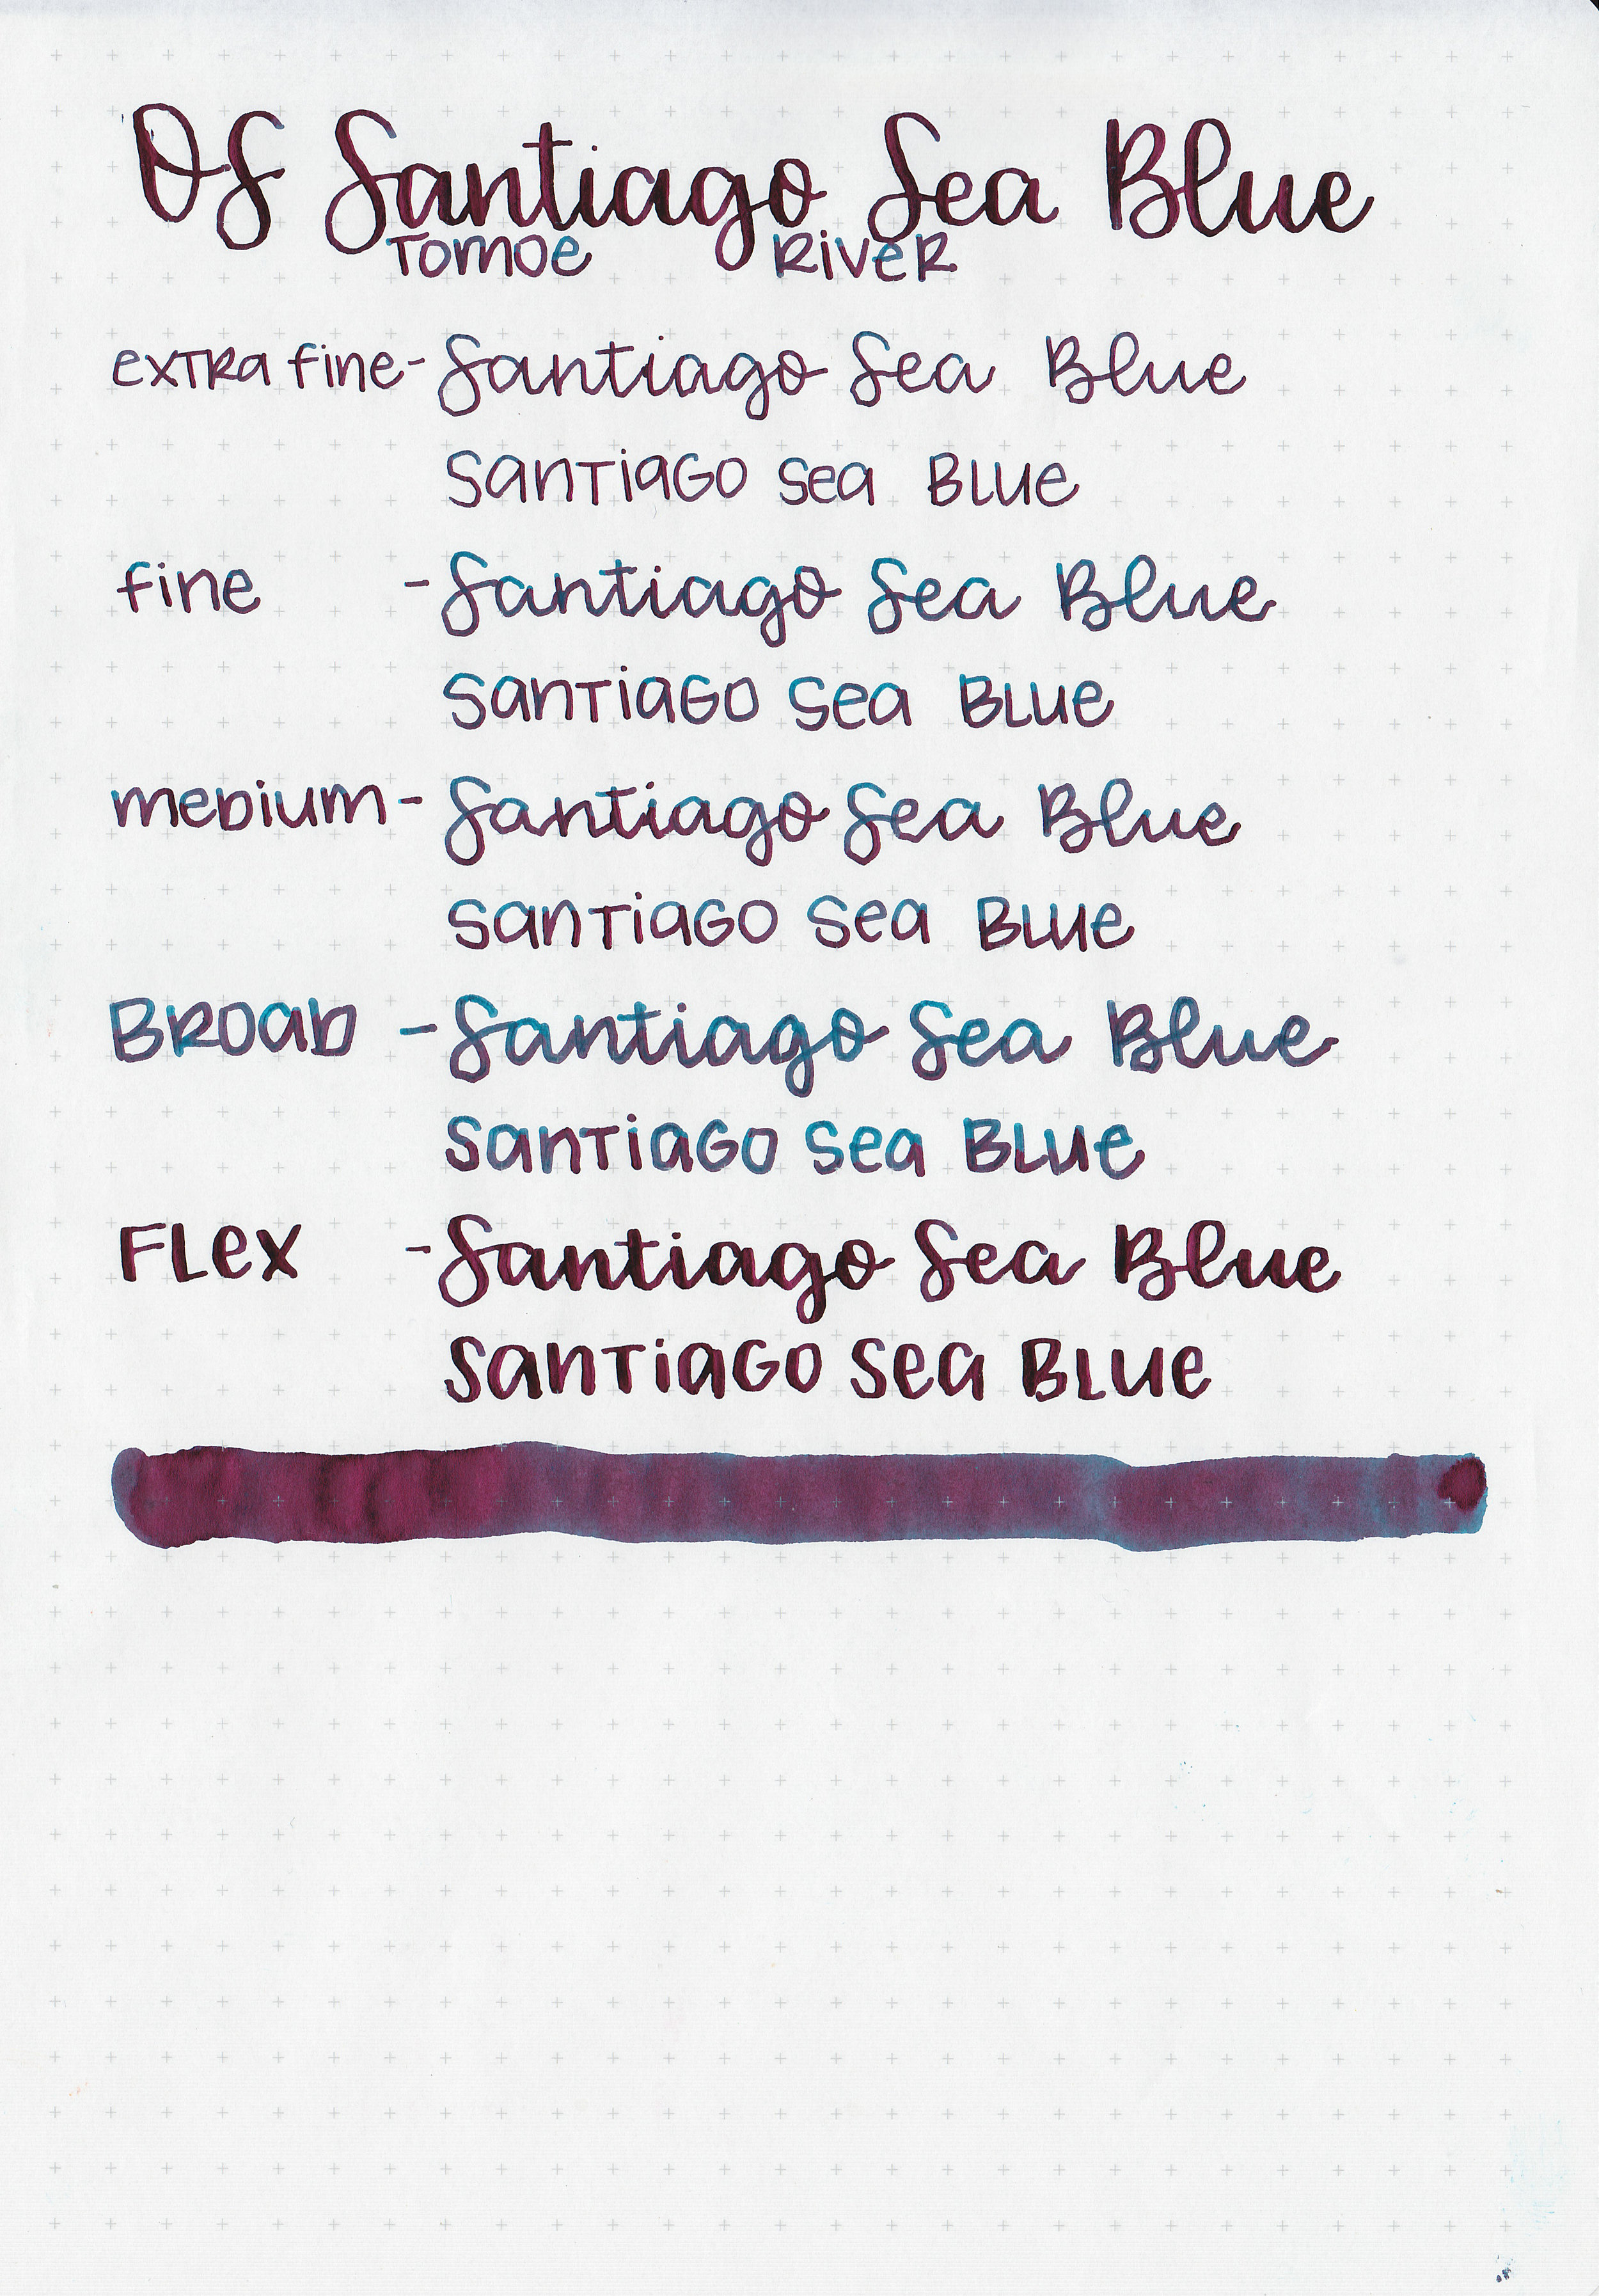 OS Santiago Sea Blue
Tomoe River
extra fine - Santiago Sea Blue
Santiago Sea Blue
fine - Santiago Sea Blue
Santiago Sea Blue
medium - Santiago Sea Blue
Santiago Sea Blue
Broad - Santiago Sea Blue
Santiago Sea Blue
Flex - Santiago Sea Blue
Santiago Sea Blue